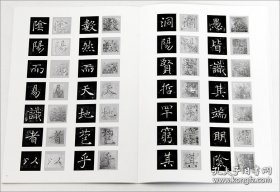 愚皆識其端明陰
洞陽賢哲罕窮其
數然而天地苞乎
陰陽而易識者以